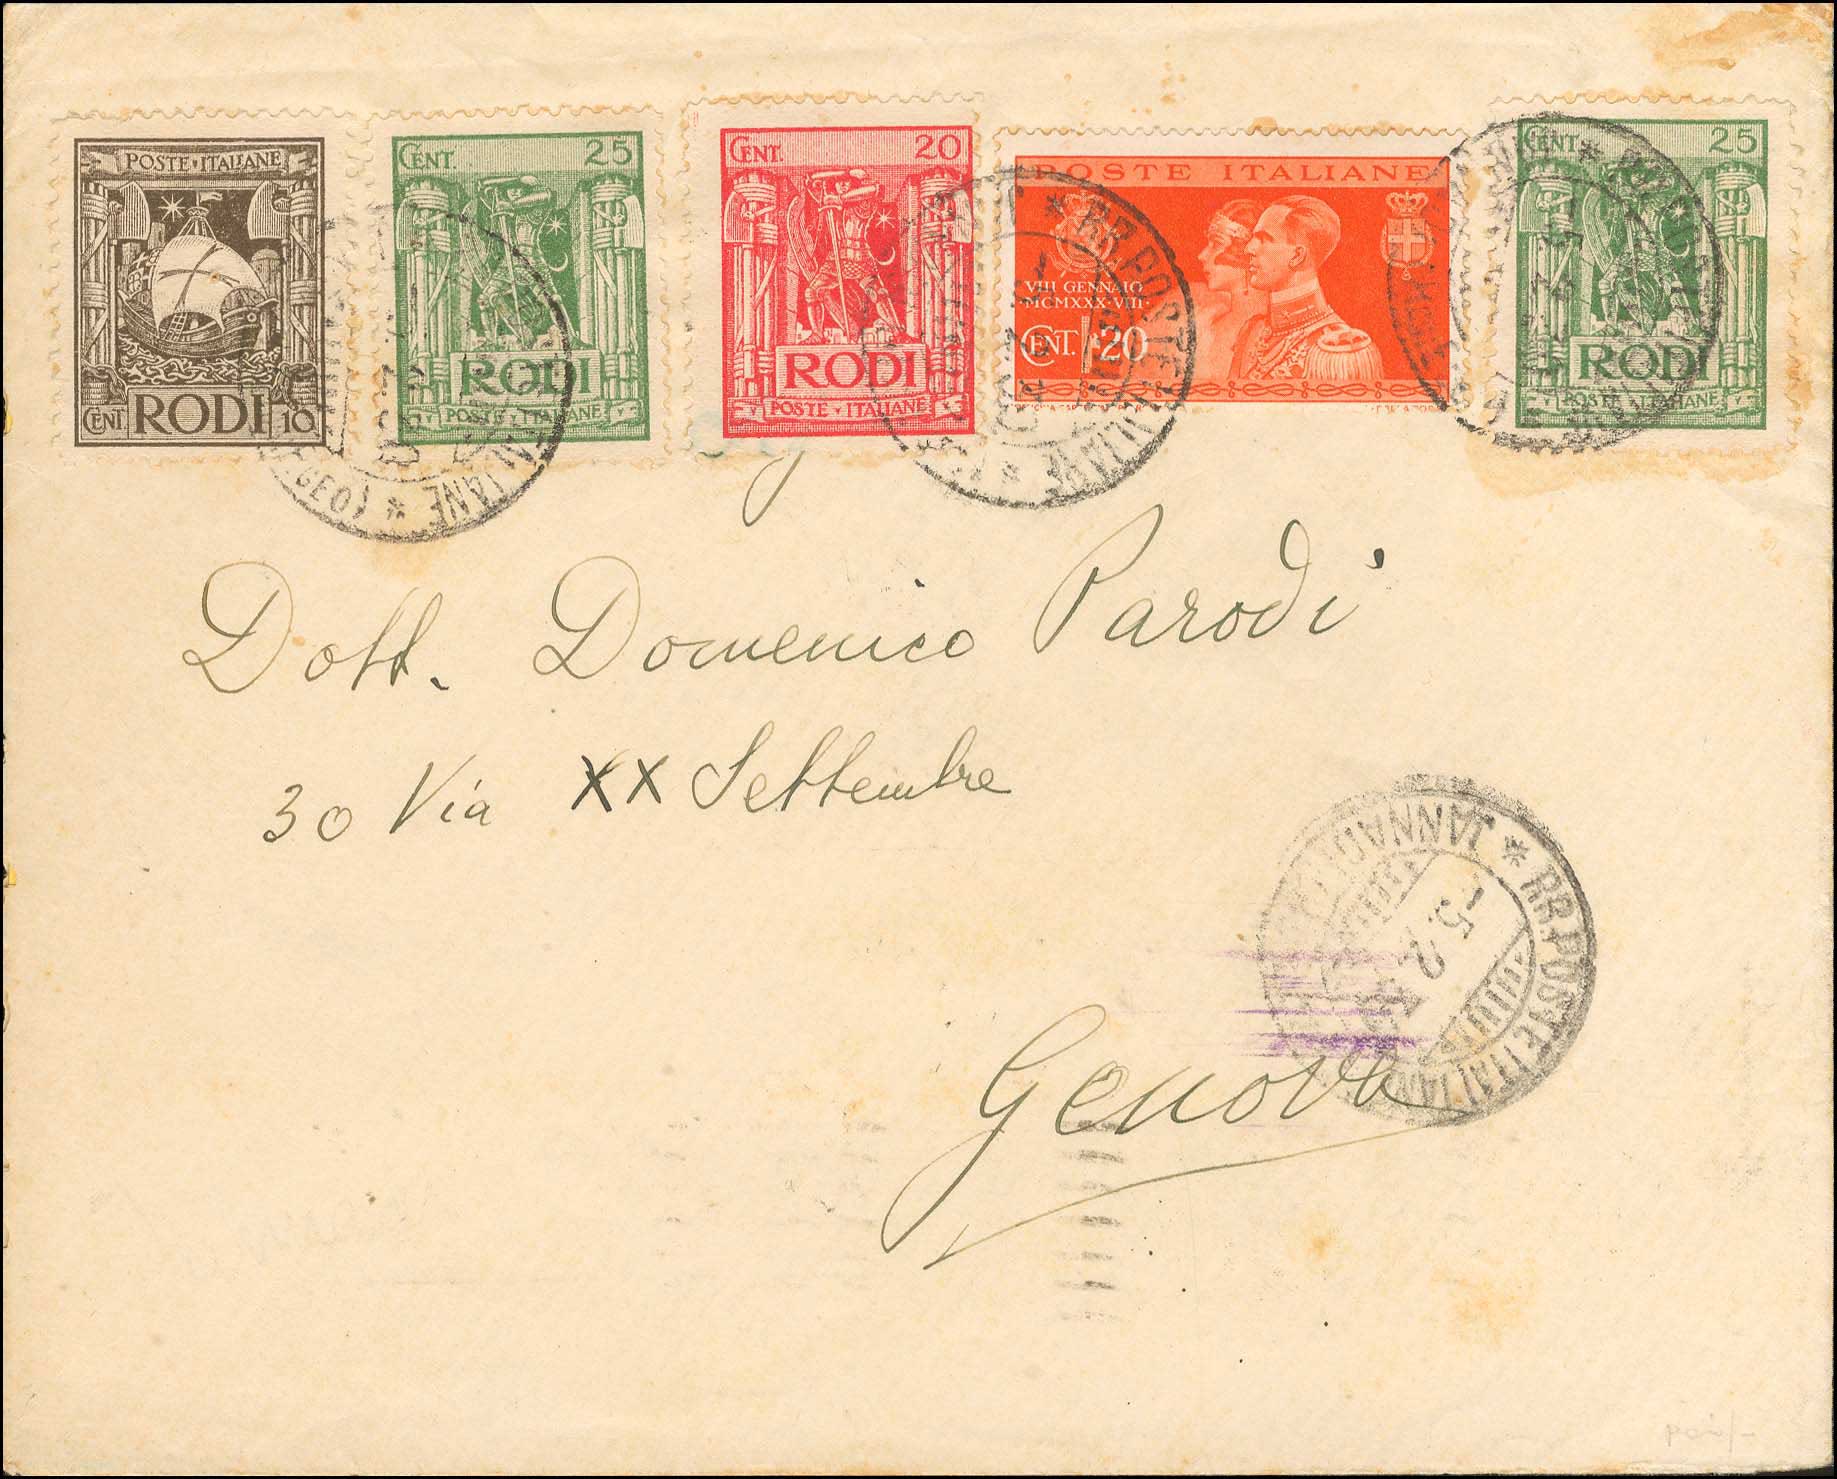 POSTE · ITALIANE
CENT. RODI 10
CENT. 25
RODI
POSTE · ITALIANE
CENT. 20
RODI
POSTE · ITALIANE
POSTE ITALIANE
VIII GENNAIO
MCMXXX·VIII·
CENT. 20
CENT. 25
RODI
POSTE · ITALIANE
* RR. POSTE ITALIANE *
EGEO) *
Dott. Domenico Parodi
30 Via XX Settembre
Genova
* RR. POSTE ITALIANE
-5.2